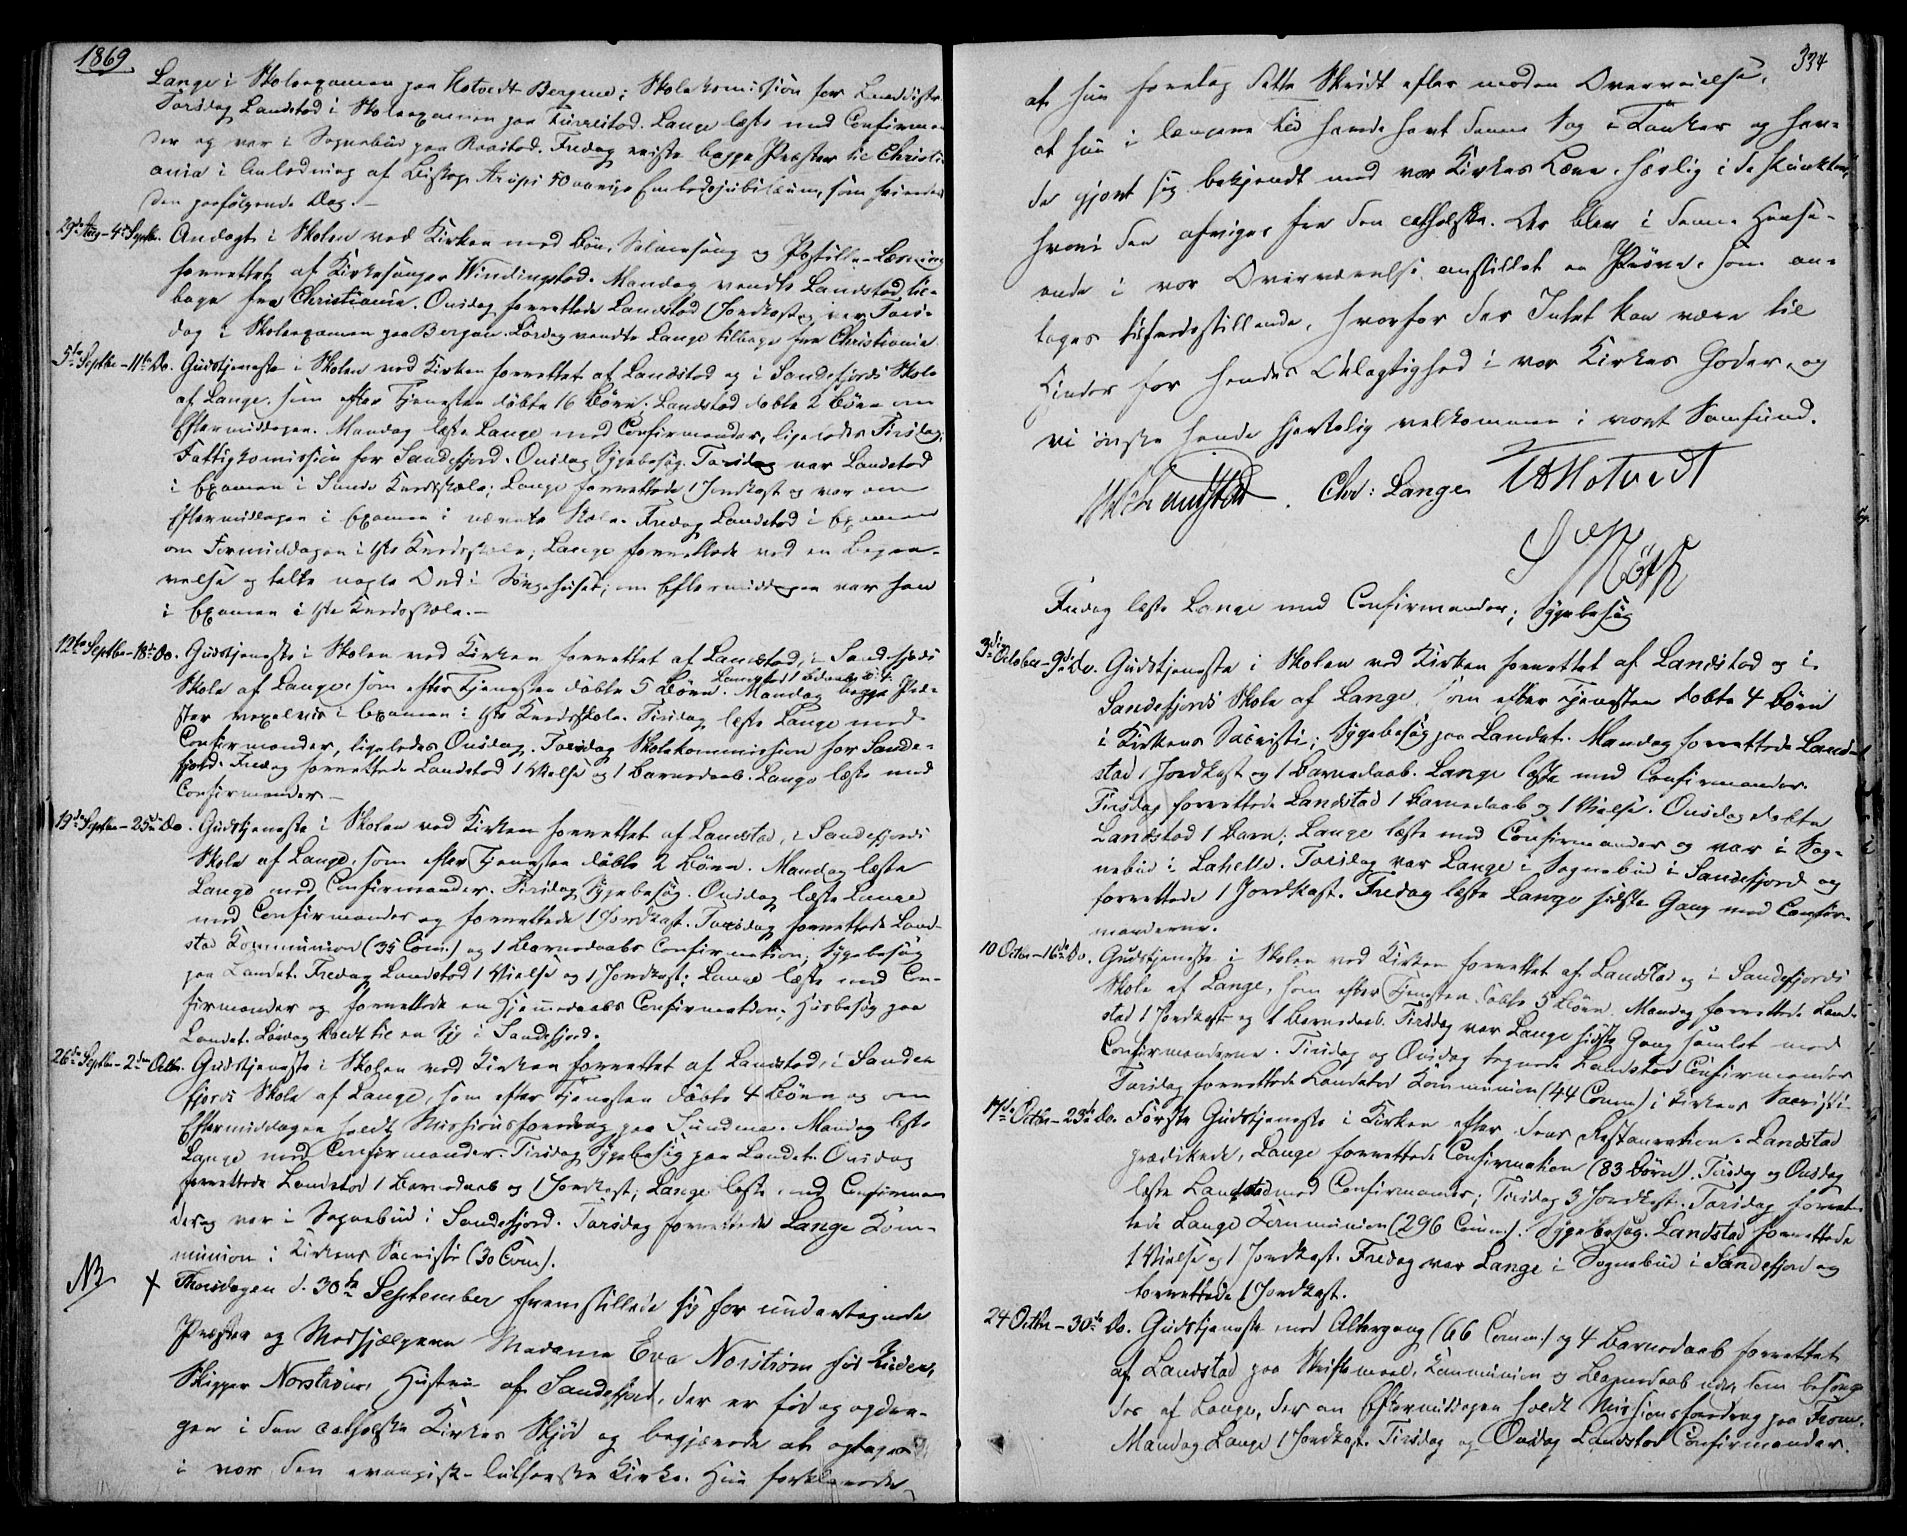 1869
Lange i Skoleexamen paa Hotvedt Bergene; Skolekomission for
Torsdag Landstad i Skoleexamen paa Furustad. Lange læste med Confirman
der og var i Sognebud paa Raastad. Fredag reiste begge Præster til Christi
ania i Anledning af Biskop Arups 50 aarige Embedsjubilæum, som
den paafølgende Dag. —
29de Aug – 4de Septbr. Andagt i Skolen ved Kirken med Bøn, Salmesang og Postille-Læsning
forrettet af Kirkesanger Windingstad. Mandag vendte Landstad til-
bage fra Christiania. Onsdag forrettede Landstad 1 Jordkast og var Tors-
dag i Skoleexamen paa Bergan. Lørdag vendte Lange tilbage fra Christiania
5te Septbr – 11te Do. Gudstjeneste i Skolen ved Kirken forrettet af Landstad og i Sandefjords Skole
af Lange, som efter Tjenesten døbte 16 Børn; Landstad døbte 2 Børn om
Eftermiddagen. Mandag læste Lange med Confirmander, ligeledes Tirsdag.
Fattigkomission for Sandefjord. Onsdag Sygebesøg. Torsdag var Landstad
i Examen i Sande Kredsskole; Lange forrettede 1 Jordkast og var om
Eftermiddagen i Examen i nævnte Skole. Fredag Landstad i Examen
om Formiddagen i 1ste Kredsskole; Lange forrettede ved en Begra-
velse og talte nogle Ord i Sørgehuset; om Eftermiddagen var han
i Examen i 1ste Kredsskole. —
12te Septbr – 18de Do. Gudstjeneste i Skolen ved Kirken forrettet af Landstad, i Sandefjords
Skole af Lange, som efter Tjenesten døbte 5 Børn. Mandag begge Præ-
ster vexelvis i Examen i 1ste Kredsskole. Tirsdag læste Lange med
Confirmander, ligeledes Onsdag. Torsdag Skolekommission for Sande-
fjord. Fredag forrettede Landstad 1 Vielse og 1 Barnedaab. Lange læste med
Confirmander —
19de Septbr – 25de Do. Gudstjeneste i Skolen ved Kirken forrettet af Landstad, i Sandefjords
Skole af Lange, som efter Tjenesten døbte 2 Børn. Mandag læste
Lange med Confirmander. Tirsdag Sygebesøg. Onsdag læste Lange
med Confirmander og forrettede 1 Jordkast. Torsdag forrettede Land-
stad Kommunion (35 Comm.) og 1 Barnedaabs Confirmation; Sygebesøg
paa Landet. Fredag Landstad 1 Vielse og 1 Jordkast; Lange læste med Con-
firmander og forrettede en Hjemmedaabs Confirmation; Husbesøg paa
Landet. Lørdag kaldt til en Syg i Sandefjord.
26de Septbr – 2den Octbr. Gudstjeneste i Skolen ved Kirken forrettet af Landstad, i Sande-
fjords Skole af Lange, som efter Tjenesten døbte 4 Børn og om
Eftermiddagen holdt Missionsforedrag paa Sundene. Mandag læste
Lange med Confirmander. Tirsdag Sygebesøg paa Landet. Onsdag
forrettede Landstad 1 Barnedaab og 1 Jordkast; Lange læste med Confirman
der og var i Sognebud i Sandefjord. Torsdag forrettede Lange Kom-
munion i Kirkens Sacristi (30 Com).
NB + Thorsdagen d. 30te September fremstillede sig for undertegnede
Præster og Medhjælpere Madame Eva Norstrøm fød
Skipper Norstrøms Hustru af Sandefjord, der er fød og opdra-
gen i den catholske Kirkes Skjød og begjærede at optages
i vor, den evangelisk-lutherske Kirke. Hun forklarede
334
at hun foretog dette Skridt efter moden Overveielse,
at hun i længere Tid havde havt denne Sag i Tanker og hav-
de gjort sig bekjendt med vor Kirkes Lære, særlig i de Punkter,
hvori den afviger fra den catholske. Der blev i denne Hense-
ende i vor Overværelse anstillet en Prøve, som an-
toges tilfredsstillende, hvorfor der Intet kan være til
Hinder for hendes Delagtighed i vor Kirkes Goder, og
vi ønske hende hjertelig velkommen i vort Samfund.
MB Landstad. Chr: Lange Hotvedt
Fredag læste Lange med Confirmander; Sygebesøg
3die October – 9de Do. Gudstjeneste i Skolen ved Kirken forrettet af Landstad og i
Sandefjords Skole af Lange, som efter Tjenesten døbte 4 Børn
i Kirkens Sacristi; Sygebesøg paa Landet. Mandag forrettede Land-
stad 1 Jordkast og 1 Barnedaab. Lange læste med Confirmander.
Tirsdag forrettede Landstad 1 Barnedaab og 1 Vielse. Onsdag døbte
Landstad 1 Barn; Lange læste med Confirmander og var i Sog-
nebud i Lahelle. Torsdag var Lange i Sognebud i Sandefjord og
forrettede 1 Jordkast. Fredag læste Lange sidste Gang med Confir-
manderne.
10 Octbr – 16de Do. Gudstjeneste i Skolen ved Kirken forrettet af Landstad og i Sandefjords
Skole af Lange, som efter Tjenesten døbte 5 Børn. Mandag forrettede Land-
stad 1 Jordkast og 1 Barnedaab. Tirsdag var Lange sidste Gang samlet med
Confirmanderne. Tirsdag og Onsdag tegnede Landstad Confirmander
Torsdag forrettede Landstad Kommunion (44 Comm) i Kirkens Sacristi
17de Octbr – 23de Do. Første Gudstjeneste i Kirken efter dens Restauration. Landstad
prædikede, Lange forrettede Confirmation (83 Børn). Tirsdag og Onsdag
læste Landstad med Confirmander; Tirsdag 3 Jordkast. Torsdag forret-
tede Lange Kommunion (296 Comm). Sygebesøg. Landstad forrettede
1 Vielse og 1 Jordkast. Fredag var Lange i Sognebud i Sandefjord og
forrettede 1 Jordkast.
24 Octbr – 30te Do. Gudstjeneste med Altergang (66 Comm.) og 4 Barnedaab forrettet
af Landstad paa Skriftemaal, Kommunion og Barnedaab nær, som besørge
des af Lange, der om Eftermiddagen holdt Missionsforedrag paa From.
Mandag Lange 1 Jordkast. Tirsdag og Onsdag Landstad Confirmander.